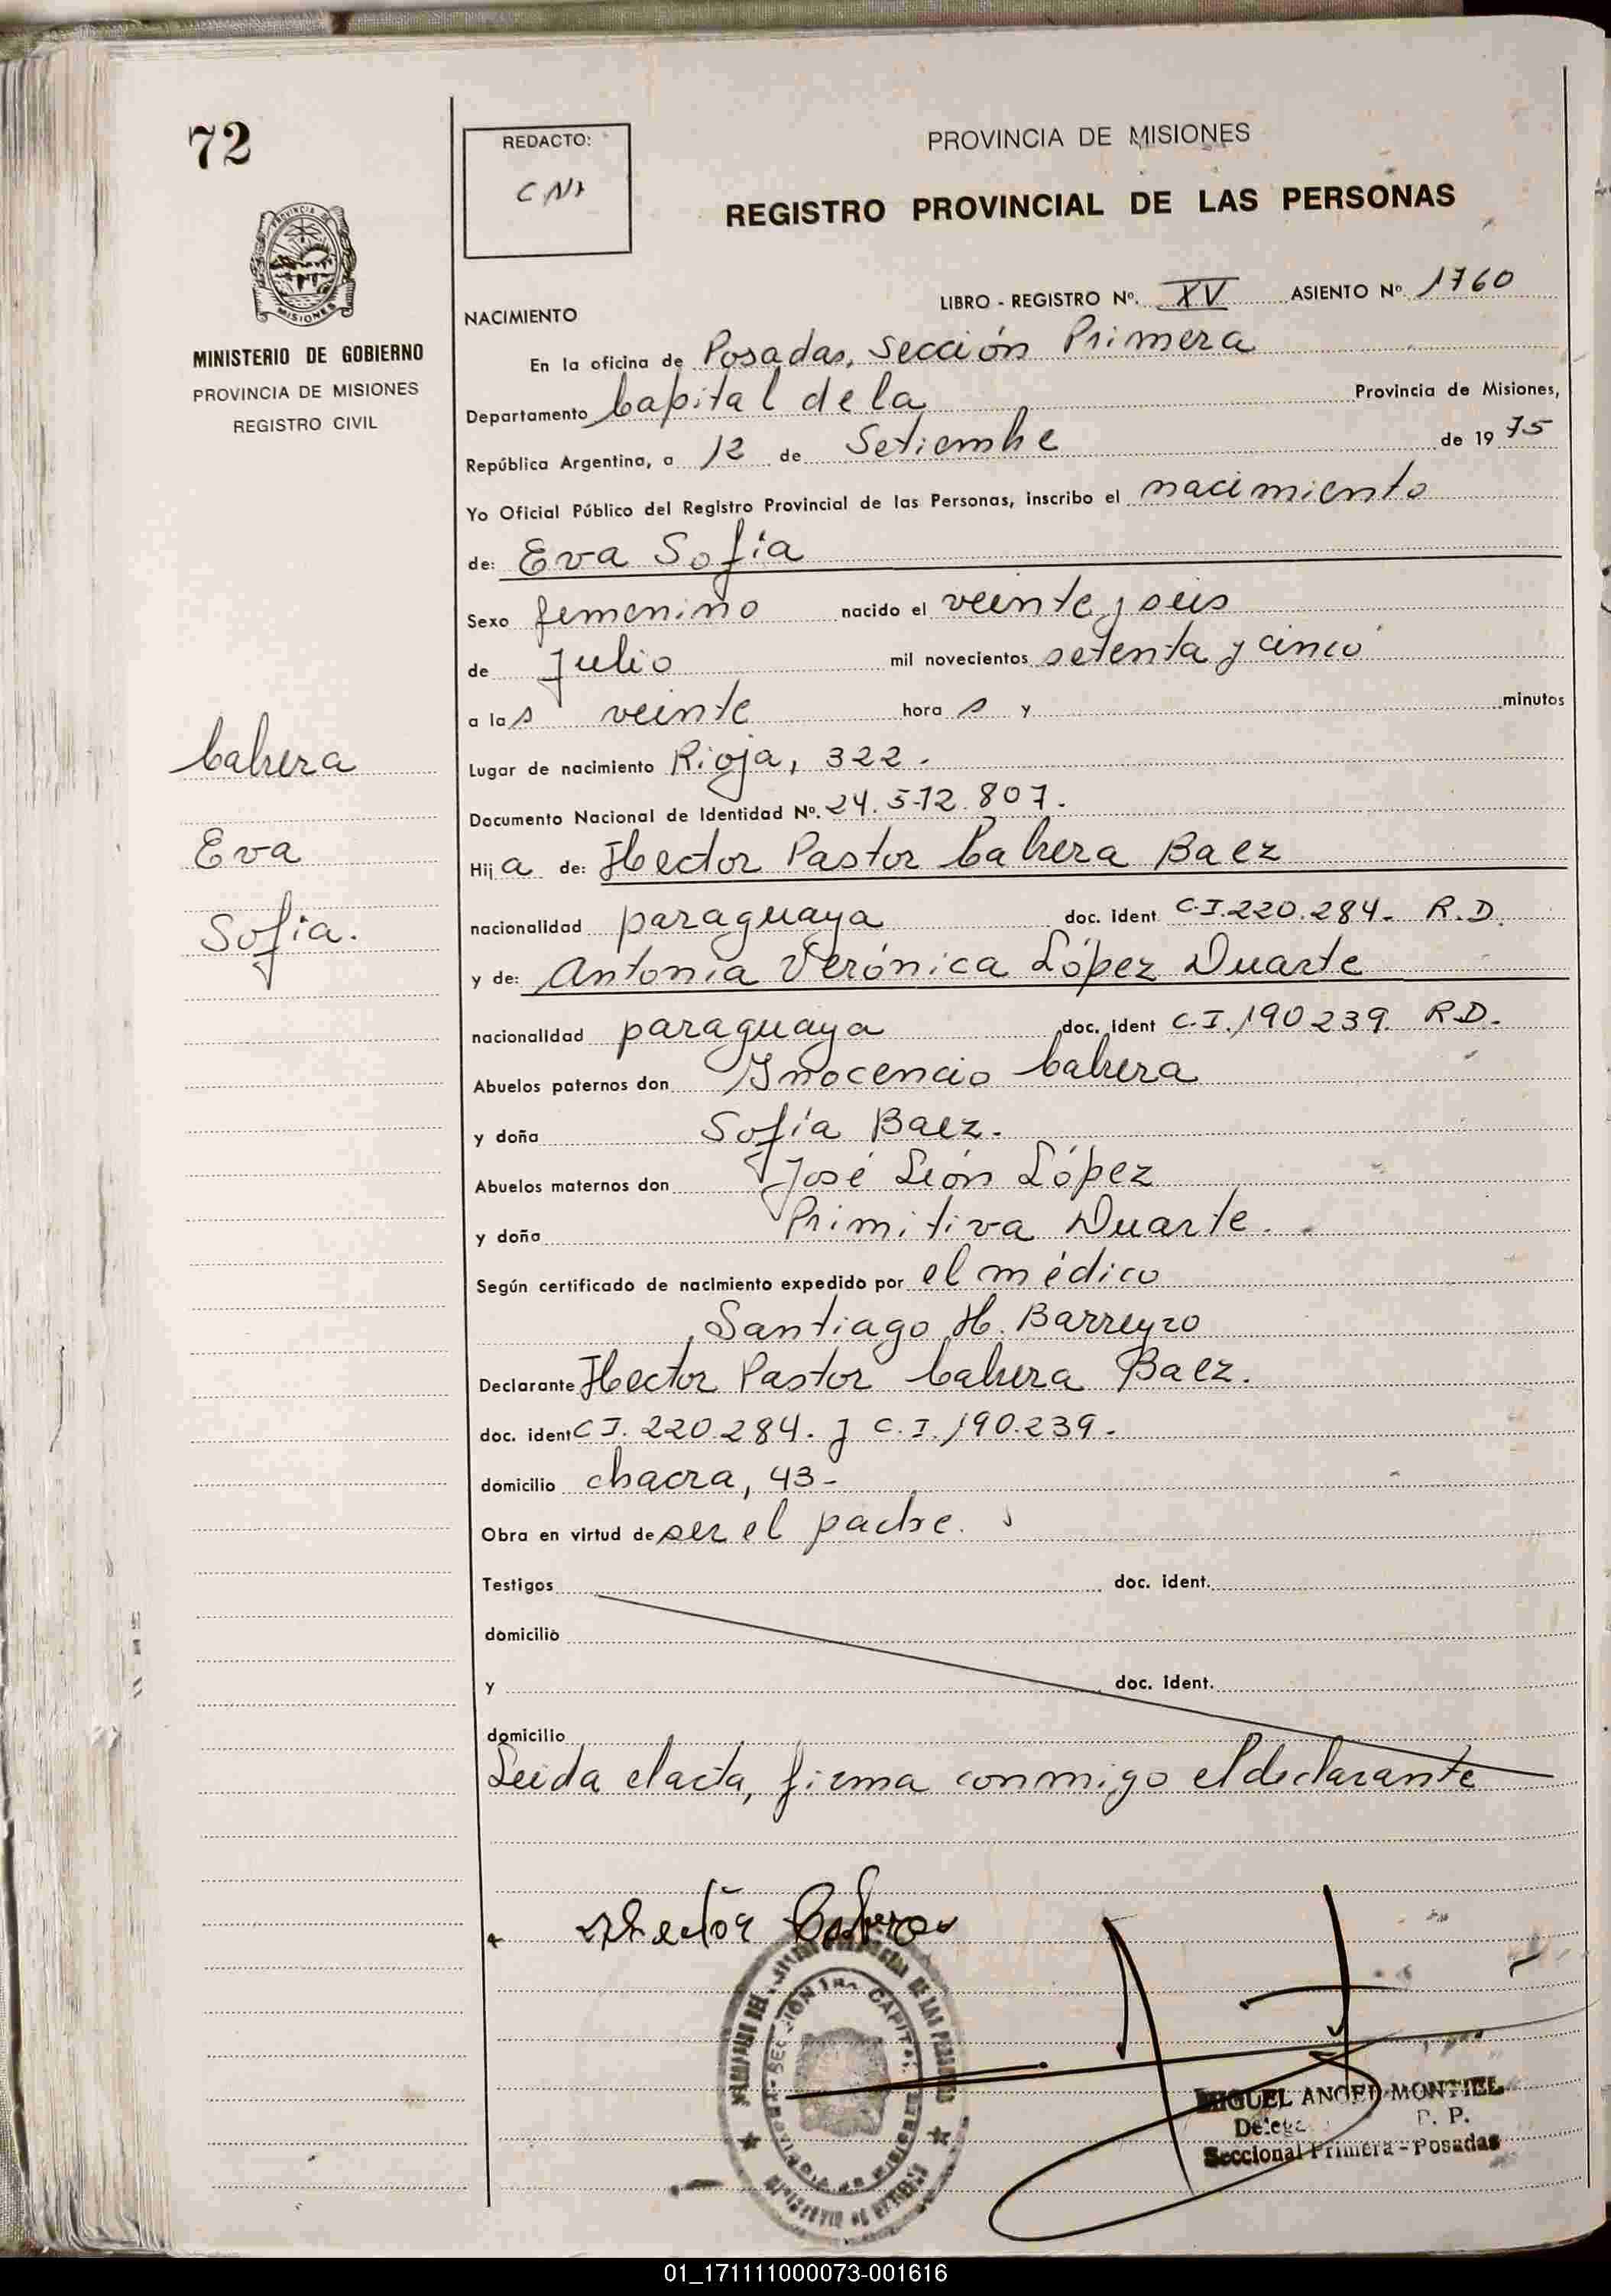 72
REDACTO:
PROVINCIA DE MISIONES
REGISTRO PROVINCIAL DE LAS PERSONAS
MISIONES
MINISTERIO DE GOBIERNO
PROVINCIA DE MISIONES
REGISTRO CIVIL
LIBRO - REGISTRO Nº. XV ASIENTO Nº. 1760
NACIMIENTO
En la oficina de Posadas, Sección Primera
Departamento Capital de la Provincia de Misiones,
República Argentina, a 12 de Setiembre de 1975
Yo Oficial Público del Registro Provincial de las Personas, inscribo el nacimiento
de: Eva Sofia
Sexo femenino nacido el veinte y seis
de Julio mil novecientos setenta y cinco
a las veinte horas y minutos
Cabrera
Lugar de nacimiento Rioja, 322.
Documento Nacional de Identidad Nº. 24.572.807.
Eva
Hija de: Hector Pastor Cabrera Baez
Sofia.
nacionalidad paraguaya doc. ident C.I.220.284. R.D.
y de: Antonia Verónica López Duarte
nacionalidad paraguaya doc. ident C.I.190.239. R.D.
Abuelos paternos don Inocencio Cabrera
y doña Sofía Baez.
Abuelos maternos don José León López
y doña Primitiva Duarte.
Según certificado de nacimiento expedido por el médico
Santiago H. Barreyro
Declarante Hector Pastor Cabrera Baez.
doc. ident C I. 220.284. y C.I.190.239.
domicilio chacra, 43-
Obra en virtud de ser el padre.
Testigos doc. ident.
domicilio
y doc. ident.
domicilio
Leida el acta, firma conmigo el declarante
Hector Cabrera
MIGUEL ANGEL MONTIEL
P. P.
Seccional Primera - Posadas
01_171111000073-001616